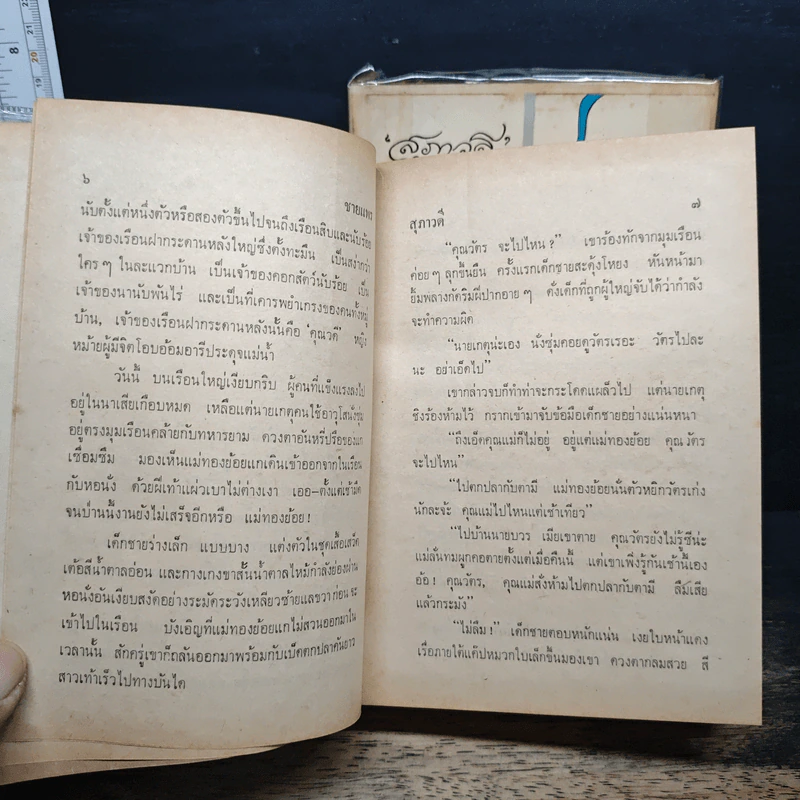 'สุภาวดี'
๖
ชายแพร
นับตั้งแต่หนึ่งตัวหรือสองตัวขึ้นไปจนถึงเรือนสิบและนับร้อย
เจ้าของเรือนฝากระดานหลังใหญ่ซึ่งตั้งทะมึน เป็นสง่ากว่า
ใคร ๆ ในละแวกบ้าน เป็นเจ้าของคอกสัตว์นับร้อย เป็น
เจ้าของนานับพันไร่ และเป็นที่เคารพยำเกรงของคนทั้งหมู่
บ้าน, เจ้าของเรือนฝากระดานหลังนั้นคือ 'คุณวดี' หญิง
หม้ายผู้มีจิตโอบอ้อมอารีประดุจแม่น้ำ
วันนี้ บนเรือนใหญ่เงียบกริบ ผู้คนที่แข็งแรงลงไป
อยู่ในนาเสียเกือบหมด เหลือแต่นายเกตุคนใช้อาวุโสนั่งซุ่ม
อยู่ตรงมุมเรือนคล้ายกับทหารยาม ดวงตาอันหรี่ปรือของแก
เชื่อมซึม มองเห็นแม่ทองย้อยแกเดินเข้าออกจากในเรือน
กับหอนั่ง ด้วยฝีเท้าแผ่วเบาไม่ต่างเงา เออ–ตั้งแต่เช้ามืด
จนป่านนี้งานยังไม่เสร็จอีกหรือ แม่ทองย้อย!
เด็กชายร่างเล็ก แบบบาง แต่งตัวในชุดเสื้อเสว็ต
เต้อสีน้ำตาลอ่อน และกางเกงขาสั้นน้ำตาลไหม้กำลังย่องผ่าน
หอนั่งอันเงียบสงัดอย่างระมัดระวังเหลียวซ้ายแลขวา ก่อนจะ
เข้าไปในเรือน บังเอิญที่แม่ทองย้อยแกไม่สวนออกมาใน
เวลานั้น สักครู่เขาก็ถลันออกมาพร้อมกับเบ็ดตกปลาคันยาว
สาวเท้าเร็วไปทางบันได
สุภาวดี
๗
"คุณวัตร จะไปไหน?" เขาร้องทักจากมุมเรือน
ค่อย ๆ ลุกขึ้นยืน ครั้งแรกเด็กชายสะดุ้งโหยง หันหน้ามา
ยิ้มพลางกัดริมฝีปากอาย ๆ ดั่งเด็กที่ถูกผู้ใหญ่จับได้ว่ากำลัง
จะทำความผิด
"นายเกตุน่ะเอง นั่งซุ่มคอยดูวัตรเรอะ วัตรไปละ
นะ อย่าเอ็ดไป"
เขากล่าวจบก็ทำท่าจะกระโดดแผล็วไป แต่นายเกตุ
ชิงร้องห้ามไว้ กรากเข้ามาจับข้อมือเด็กชายอย่างแน่นหนา
"ถึงเอ็ดคุณแม่ก็ไม่อยู่ อยู่แต่แม่ทองย้อย คุณวัตร
จะไปไหน"
"ไปตกปลากับตามี แม่ทองย้อยนั่นตัวหยิกวัตรเก่ง
นักละจ้ะ คุณแม่ไปไหนแต่เช้าเทียว"
"ไปบ้านนายบวร เมียเขาตาย คุณวัตรยังไม่รู้ซีน่ะ
แม่ลั่นทมผูกคอตายตั้งแต่เมื่อคืนนี้ แต่เขาเพิ่งรู้กันเช้านี้เอง
อ้อ! คุณวัตร, คุณแม่สั่งห้ามไปตกปลากับตามี ลืมเสีย
แล้วกระมัง"
"ไม่ลืม!" เด็กชายตอบหนักแน่น เงยใบหน้าแดง
เรื่อภายใต้แค๊ปหมวกใบเล็กขึ้นมองเขา ดวงตากลมสวย สี